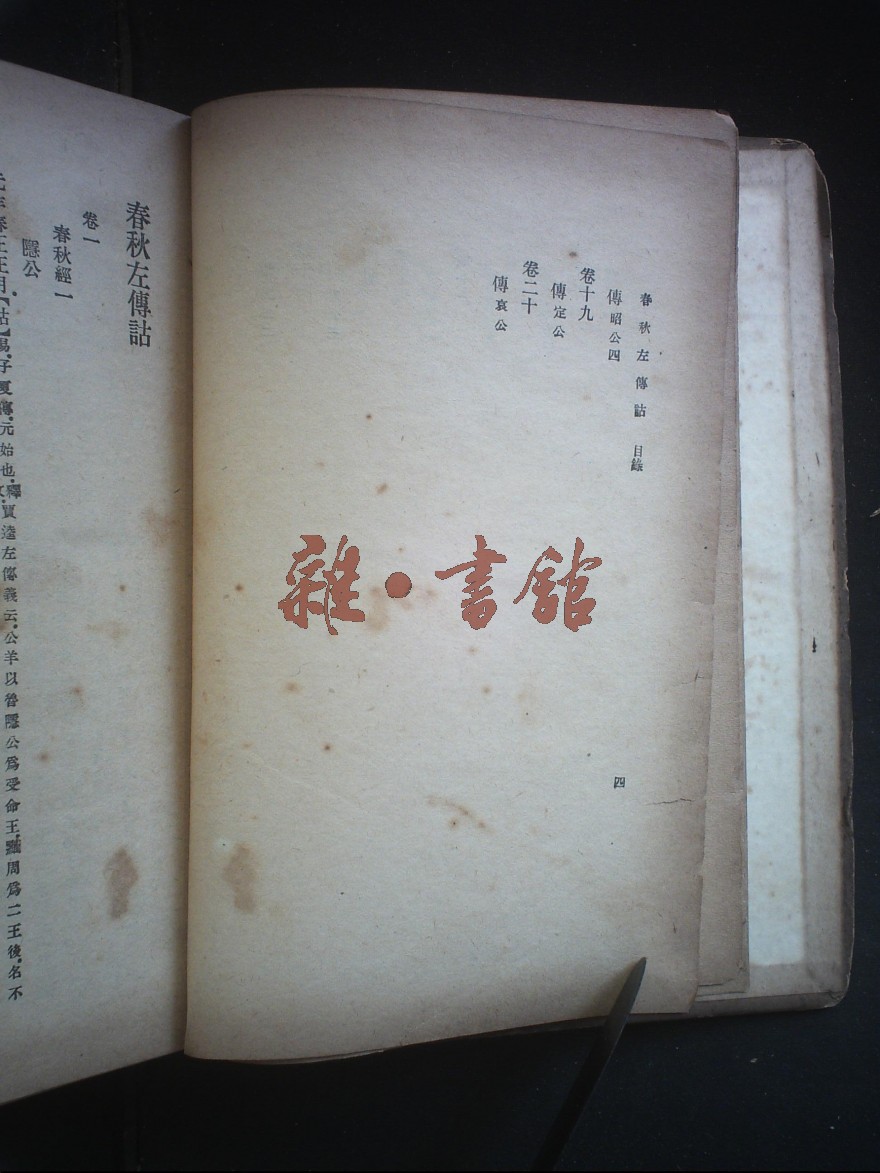 春秋左傳詁 目錄
傳昭公四
卷十九
傳定公
卷二十
傳哀公
四
雜·書館
春秋左傳詁
卷一
春秋經一
隱公
元年春王正月【詁】易子夏傳元始也釋
賈逵左傳義云公羊以魯隱公爲受命王黜周爲二王後名不